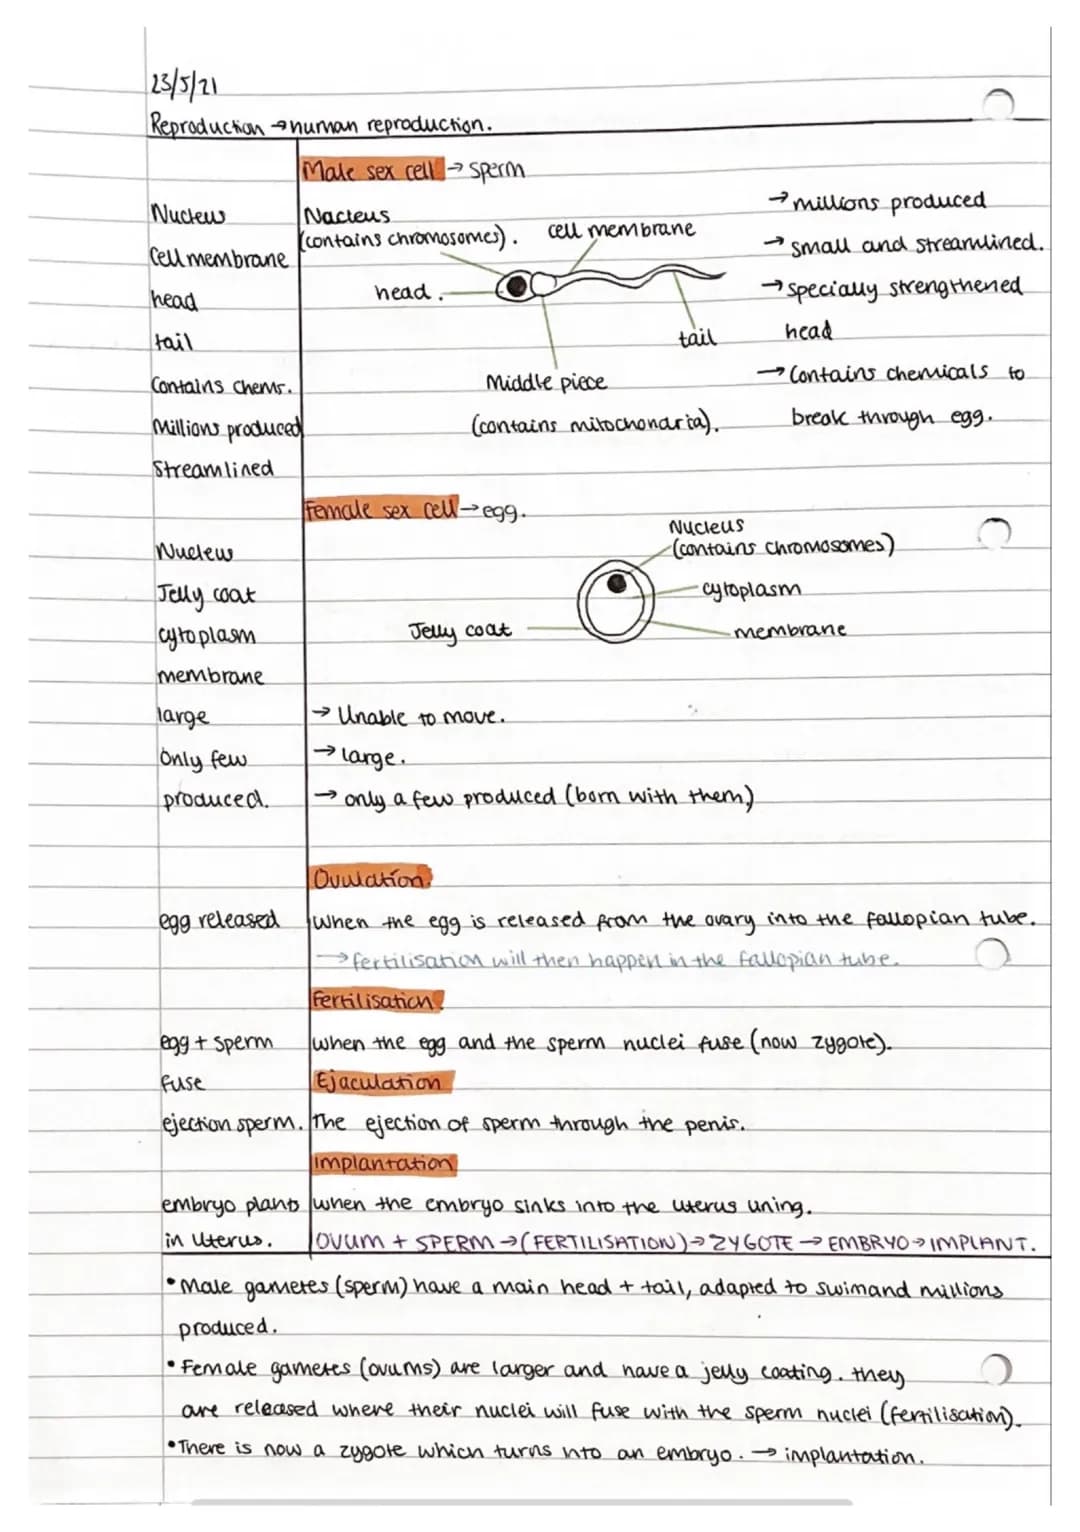 23/5/21
Reproduction → human reproduction.
Male sex cell → sperm
Nucleus
Cell membrane
head
tail
Contains chems.
Millions produced
Streamlined
Nucleus
(contains chromosomes).
cell membrane
head.
tail
Middle piece
(contains mitochondria).
→ millions produced
→ small and streamlined.
→ specially strengthened
head
→ Contains chemicals to
break through egg.
Female sex cell → egg.
Nucleus
Jelly coat
cytoplasm
membrane
large
Only few
produced.
Nucleus
(contains chromosomes)
cytoplasm
Jelly coat
membrane
→ Unable to move.
→ large.
→ only a few produced (born with them)
Ovulation:
egg released
When the egg is released from the ovary into the fallopian tube.
→ fertilisation will then happen in the fallopian tube.
Fertilisation:
egg + sperm
fuse
when the egg and the sperm nuclei fuse (now zygote).
Ejaculation
ejection sperm.
The ejection of sperm through the penis.
Implantation
embryo plants
in uterus.
when the embryo sinks into the uterus lining.
OVUM + SPERM → (FERTILISATION) → ZYGOTE → EMBRYO → IMPLANT.
• Male gametes (sperm) have a main head + tail, adapted to swim and millions
produced.
• Female gametes (ovums) are larger and have a jelly coating. they
are released where their nuclei will fuse with the sperm nuclei (fertilisation).
• There is now a zygote which turns into an embryo. → implantation.